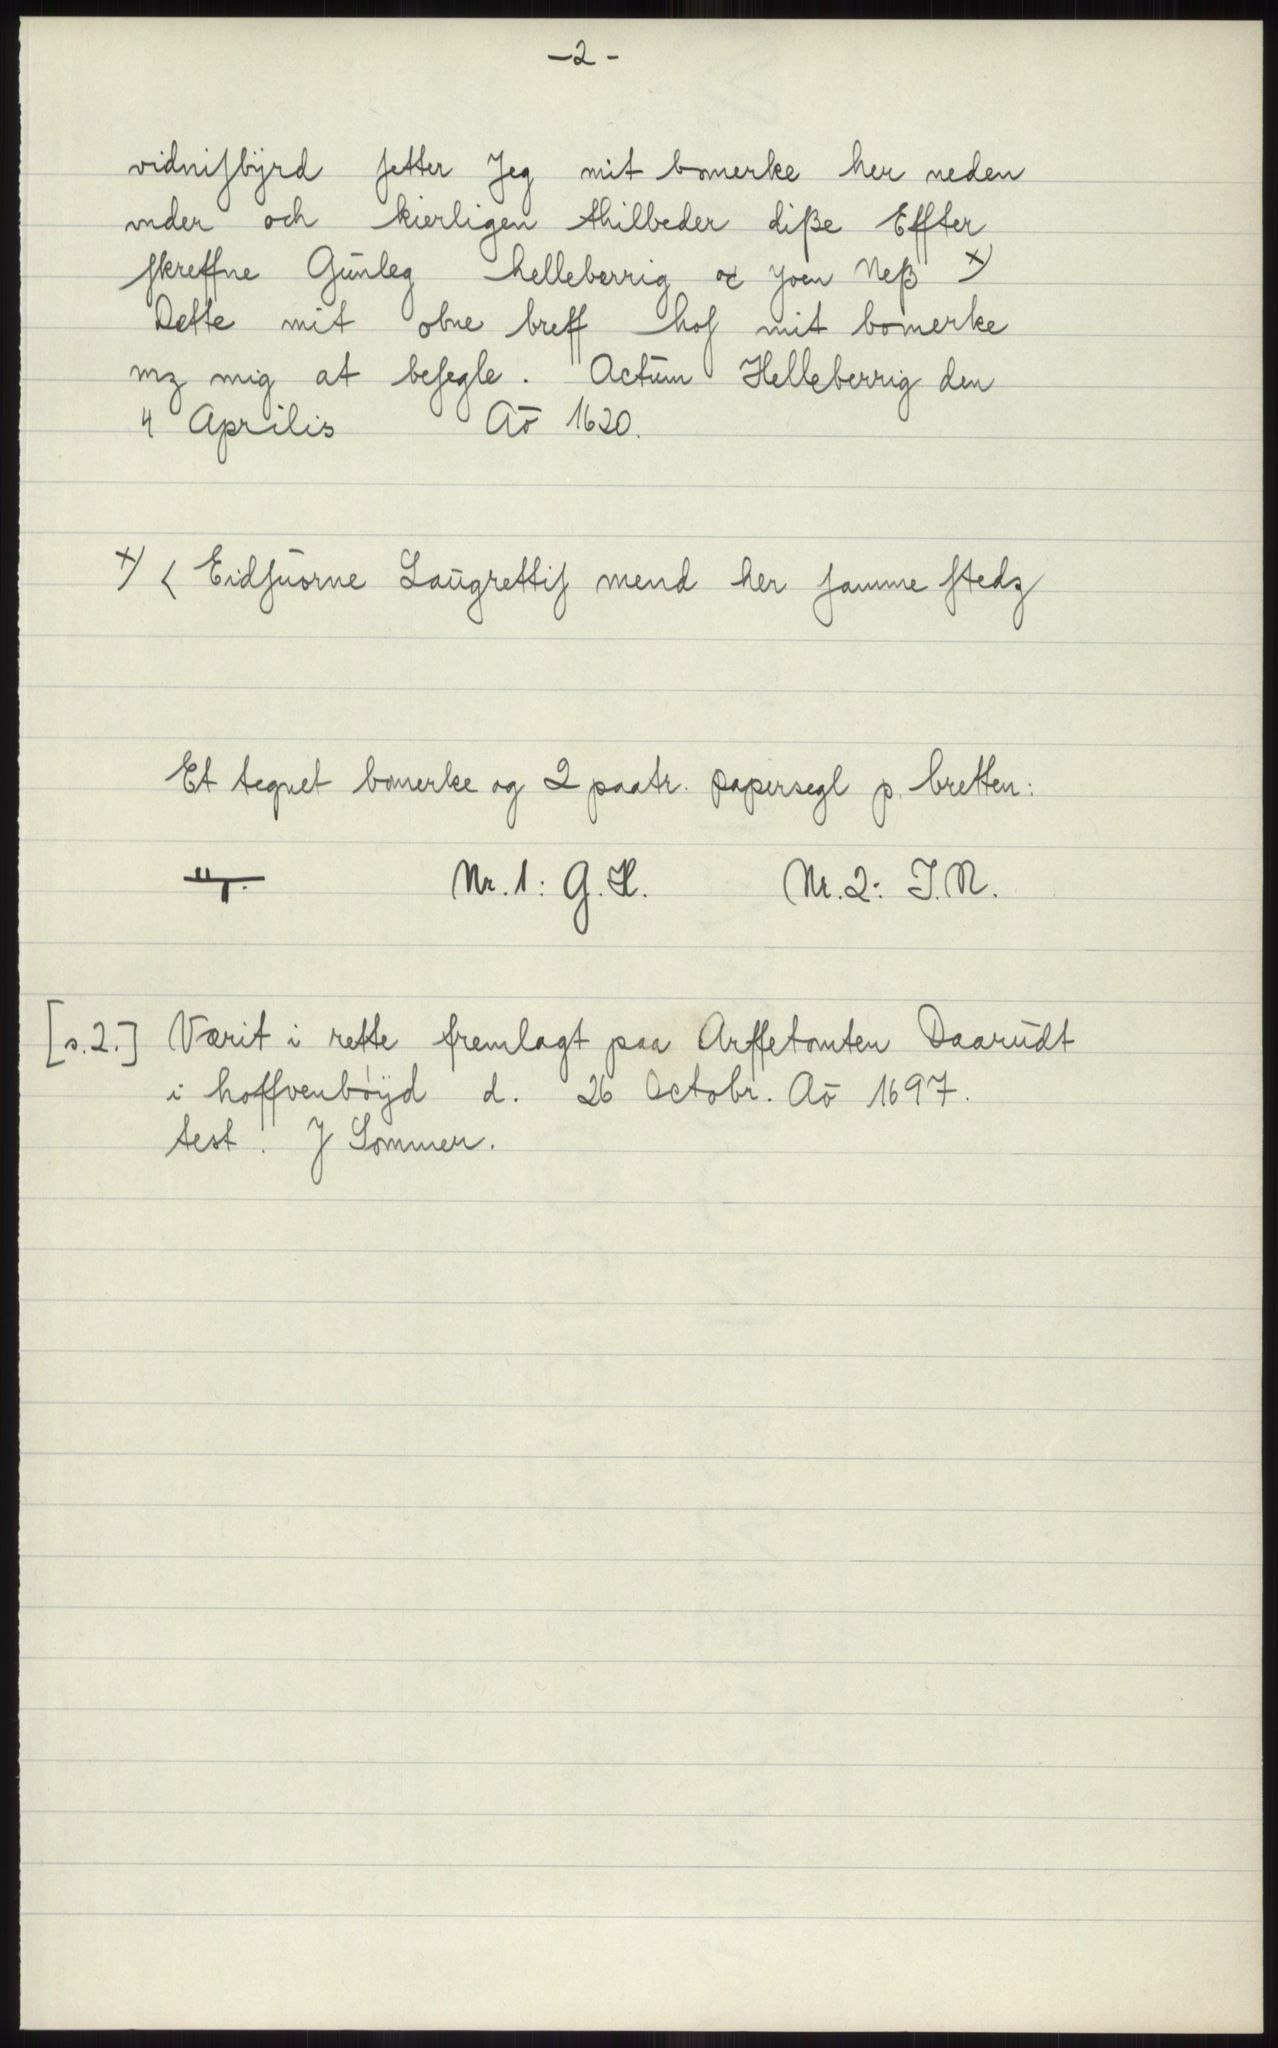 -2-
vidniſbÿrd ſetter Jeg mit bomerke her neden
vnder och kierligen thilbeder diße Effter
ſkreffne Gŭnleg helleberrig oc Joen Neß x)
Dette mit obne breff hoſ mit bomerke
mz mig at beſegle. Actŭm Helleberrig den
4 Aprilis Aō 1620.
x) < Eidſŭorne Laŭgrettiſ mend her ſamme ſtedz
Et tegnet bomerke og 2 paatr. papersegl p. bretten:
Nr. 1: G. H. Nr. 2: J. N.
[s. 2.] Værit i rette fremlagt paa Arffetomten Daarŭdt
i hoffvenbøÿd d. 26 Octobr. Aō 1697.
test. J Sommer.